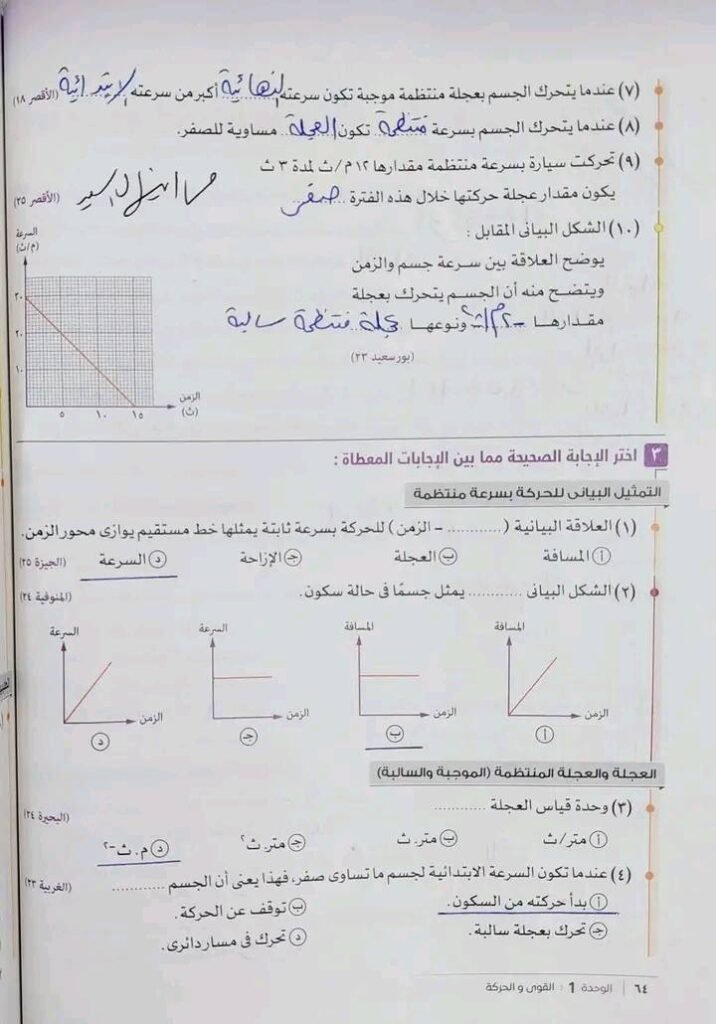 (٧) عندما يتحرك الجسم بعجلة منتظمة موجبة تكون سرعته النهائية أكبر من سرعته الابتدائية (الأقصر ١٨)
(٨) عندما يتحرك الجسم بسرعة منتظمة تكون العجلة مساوية للصفر.
(٩) تحركت سيارة بسرعة منتظمة مقدارها ١٢م/ث لمدة ٣ ث
يكون مقدار عجلة حركتها خلال هذه الفترة صفر (الأقصر ٢٥)
(١٠) الشكل البيانى المقابل :
يوضح العلاقة بين سرعة جسم والزمن
ويتضح منه أن الجسم يتحرك بعجلة
مقدارها -٢م/ث٢ ونوعها عجلة منتظمة سالبة
(بورسعيد ٢٣)
السرعة
(م/ث)
٣٠
٢٠
١٠
٥ ١٠ ١٥
الزمن
(ث)
٣ اختر الإجابة الصحيحة مما بين الإجابات المعطاة :
التمثيل البيانى للحركة بسرعة منتظمة
(١) العلاقة البيانية (............ - الزمن) للحركة بسرعة ثابتة يمثلها خط مستقيم يوازى محور الزمن.
أ المسافة ب العجلة جـ الإزاحة د السرعة (الجيزة ٢٥)
(٢) الشكل البيانى ............ يمثل جسمًا فى حالة سكون. (المنوفية ٢٤)
المسافة المسافة السرعة السرعة
الزمن الزمن الزمن الزمن
أ ب جـ د
العجلة والعجلة المنتظمة (الموجبة والسالبة)
(٣) وحدة قياس العجلة ............ (البحيرة ٢٤)
أ متر/ث ب متر.ث جـ متر.ث٢ د م.ث-٢
(٤) عندما تكون السرعة الابتدائية لجسم ما تساوى صفر، فهذا يعنى أن الجسم ............ (الغربية ٢٣)
أ بدأ حركته من السكون. ب توقف عن الحركة.
جـ تحرك بعجلة سالبة. د تحرك فى مسار دائرى.
٦٤ | الوحدة 1 : القوى و الحركة